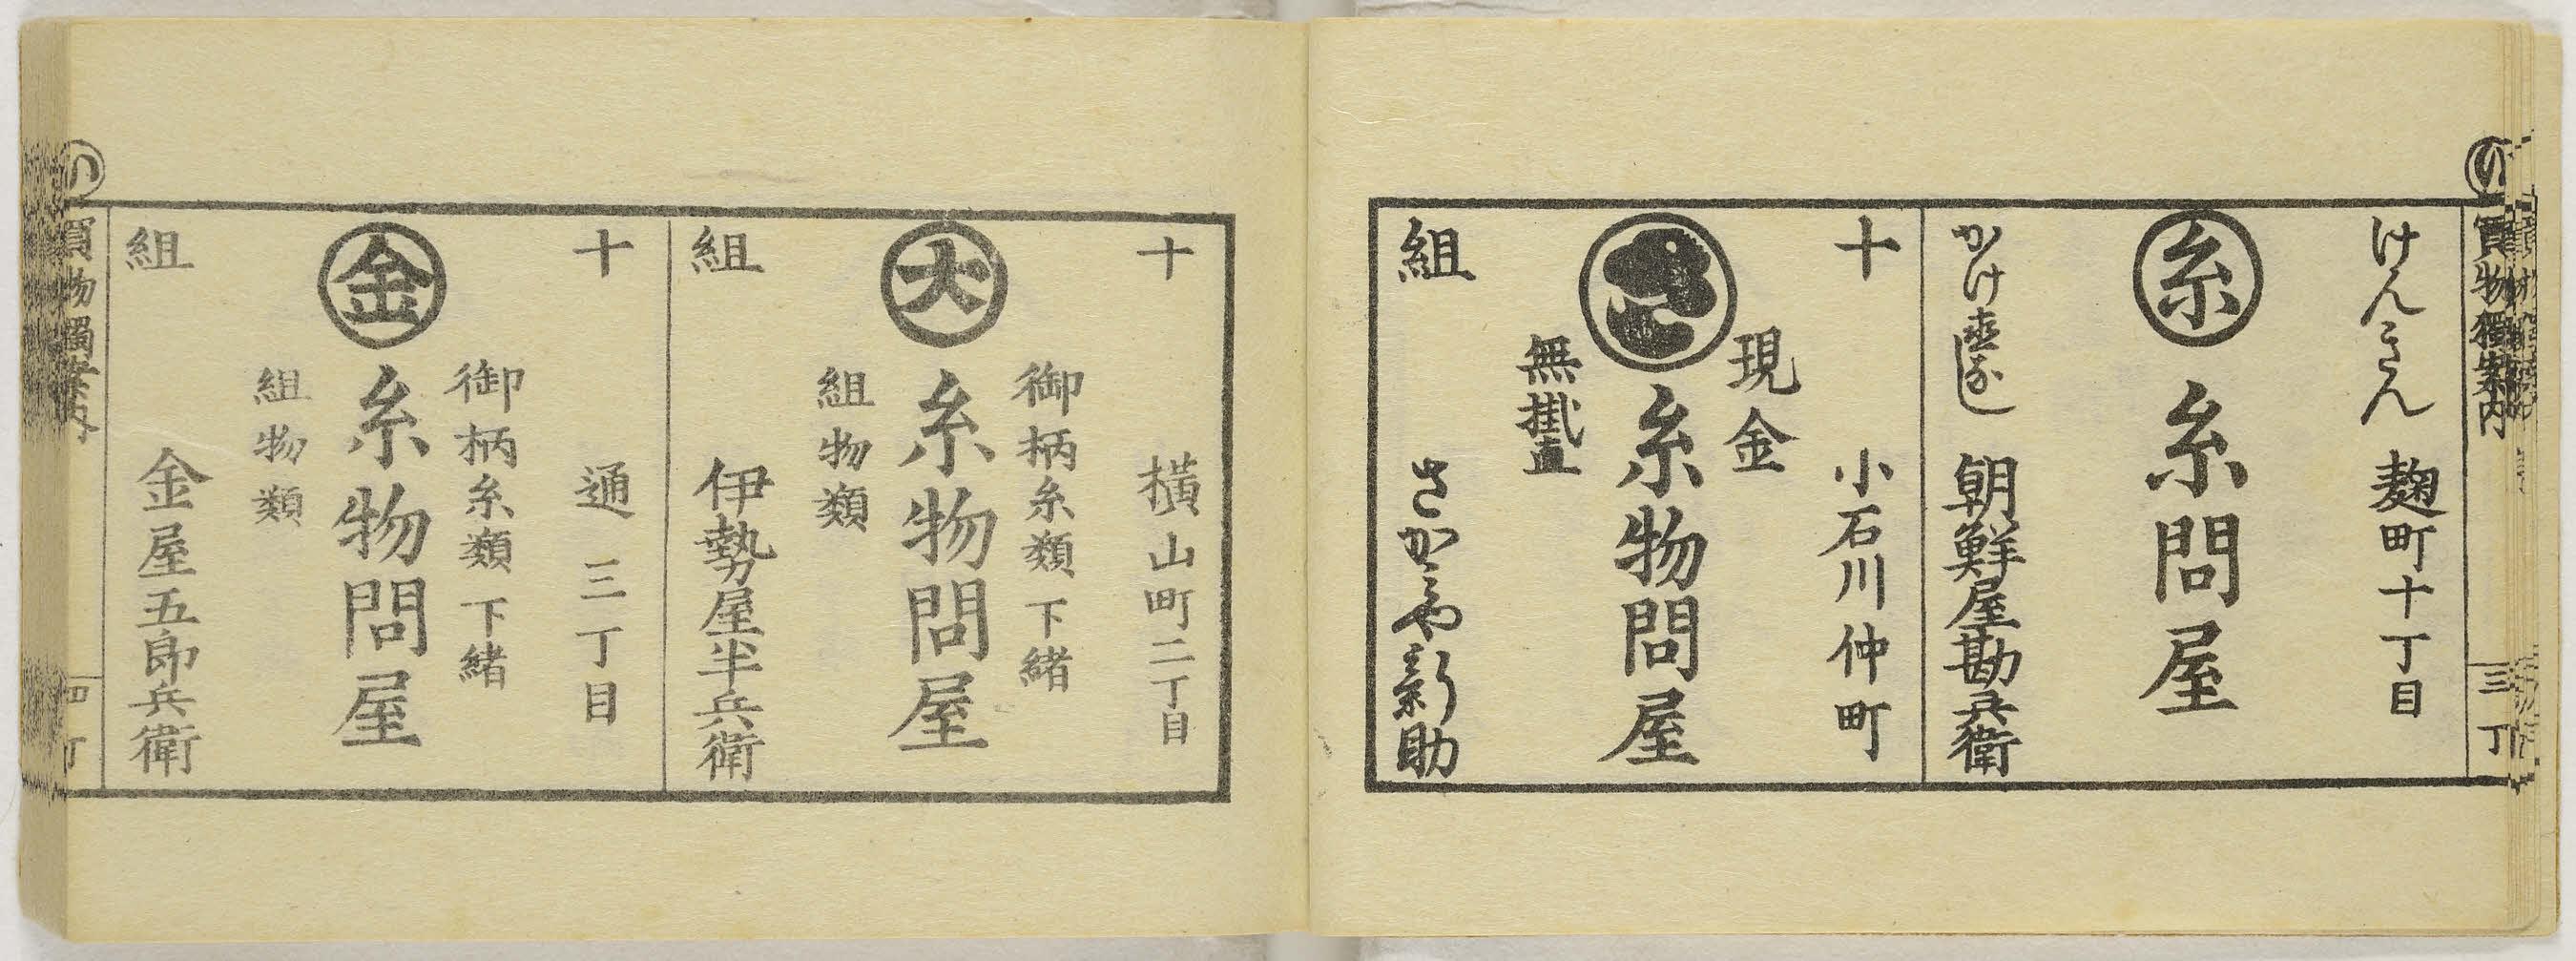 い
買物獨案内
三丁
けんきん
麹町十丁目
糸
糸問屋
かけ直なし
朝鮮屋勘兵衛
十
小石川仲町
現金
糸物問屋
無掛直
組
さかミや新助
十
横山町二丁目
御柄糸類下緒
大
糸物問屋
組物類
組
伊勢屋半兵衛
十
通三丁目
御柄糸類下緒
金
糸物問屋
組物類
組
金屋五郎兵衛
い
買物獨案内
四丁